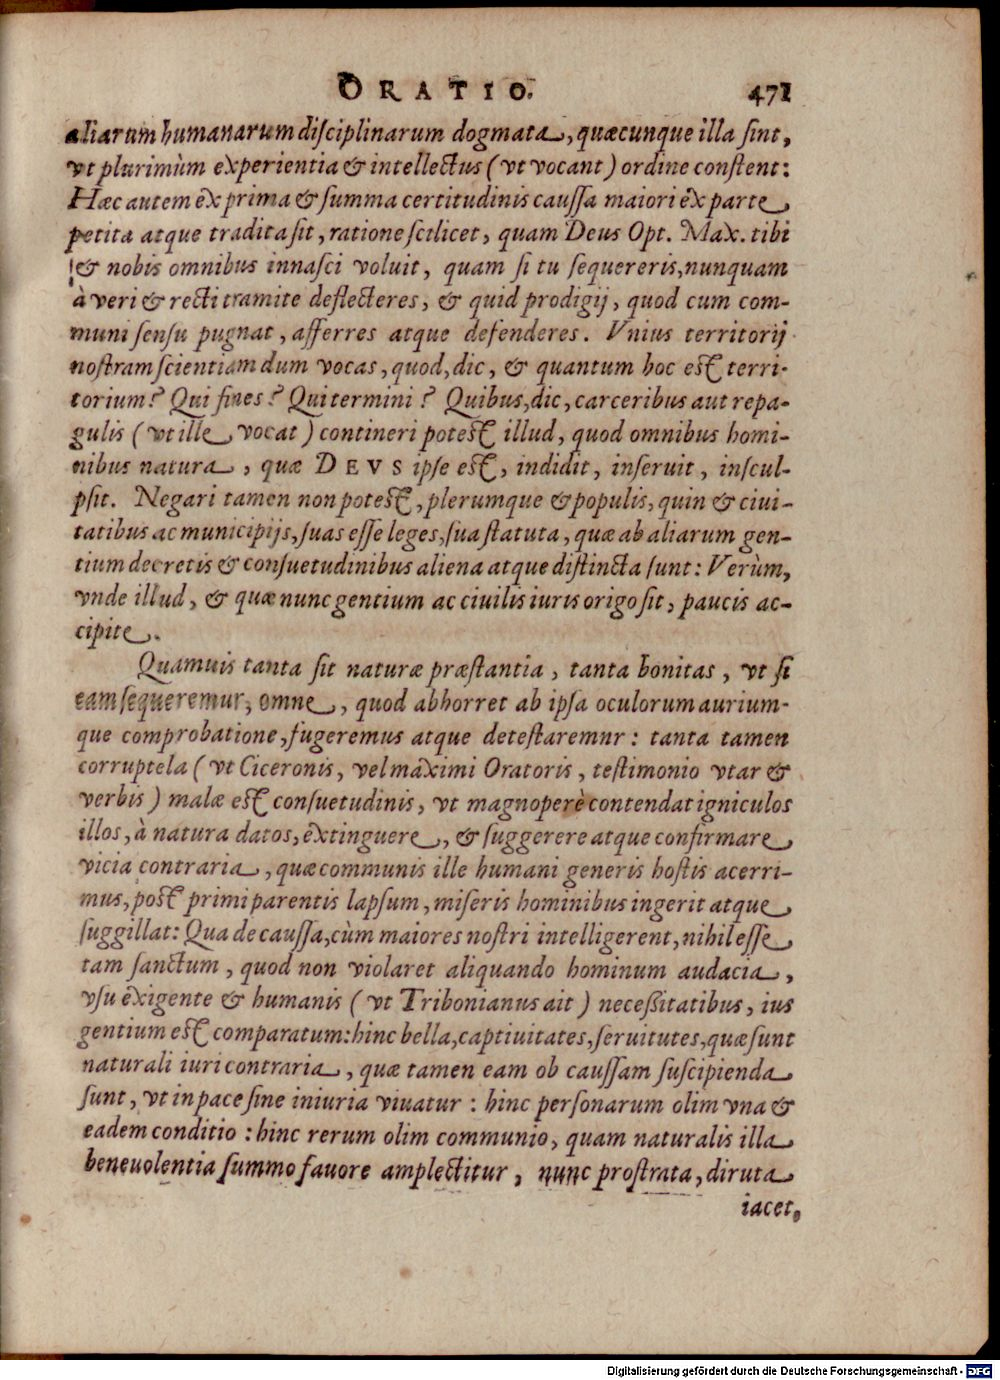 ORATIO. 471
aliarum humanarum diſciplinarum dogmata, quæcunque illa ſint,
vt plurimùm experientia & intellectus (vt vocant) ordine conſtent:
Hæc autem ex prima & ſumma certitudinis cauſſa maiori ex parte
petita atque tradita ſit, ratione ſcilicet, quam Deus Opt. Max. tibi
& nobis omnibus innaſci voluit, quam ſi tu ſequereris, nunquam
à veri & recti tramite deflecteres, & quid prodigij, quod cum com-
muni ſenſu pugnat, afferres atque defenderes. Vnius territorij
noſtram ſcientiam dum vocas, quod, dic, & quantum hoc eſt terri-
torium? Qui fines? Qui termini? Quibus, dic, carceribus aut repa-
gulis (vt ille vocat) contineri poteſt illud, quod omnibus homi-
nibus natura, quæ DEVS ipſe eſt, indidit, inſeruit, inſcul-
pſit. Negari tamen non poteſt, plerumque & populis, quin & ciui-
tatibus ac municipijs, ſuas eſſe leges, ſua ſtatuta, quæ ab aliarum gen-
tium decretis & conſuetudinibus aliena atque diſtincta ſunt: Verùm,
vnde illud, & quæ nunc gentium ac ciuilis iuris origo ſit, paucis ac-
cipite.
Quamuis tanta ſit naturæ præſtantia, tanta bonitas, vt ſi
eam ſequeremur, omne, quod abhorret ab ipſa oculorum aurium-
que comprobatione, fugeremus atque deteſtaremnr: tanta tamen
corruptela (vt Ciceronis, vel maximi Oratoris, teſtimonio vtar &
verbis) malæ eſt conſuetudinis, vt magnoperè contendat igniculos
illos, à natura datos, extinguere, & ſuggerere atque confirmare
vicia contraria, quæ communis ille humani generis hoſtis acerri-
mus, poſt primi parentis lapſum, miſeris hominibus ingerit atque
ſuggillat: Qua de cauſſa, cùm maiores noſtri intelligerent, nihil eſſe
tam ſanctum, quod non violaret aliquando hominum audacia,
vſu exigente & humanis (vt Tribonianus ait) neceſſitatibus, ius
gentium eſt comparatum: hinc bella, captiuitates, ſeruitutes, quæ ſunt
naturali iuri contraria, quæ tamen eam ob cauſſam ſuſcipienda
ſunt, vt in pace ſine iniuria viuatur: hinc perſonarum olim vna &
eadem conditio: hinc rerum olim communio, quam naturalis illa
beneuolentia ſummo fauore amplectitur, nunc proſtrata, diruta
iacet,
Digitalisierung gefördert durch die Deutsche Forschungsgemeinschaft - DFG